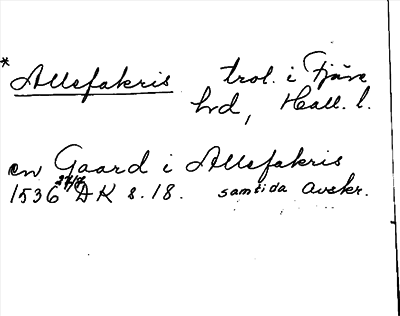 * Allsfakris trol. i Fjäre
hrd, Hall. l.
en Gaard i Allsfakris
1536 27/7 DK s. 18. samtida avskr.